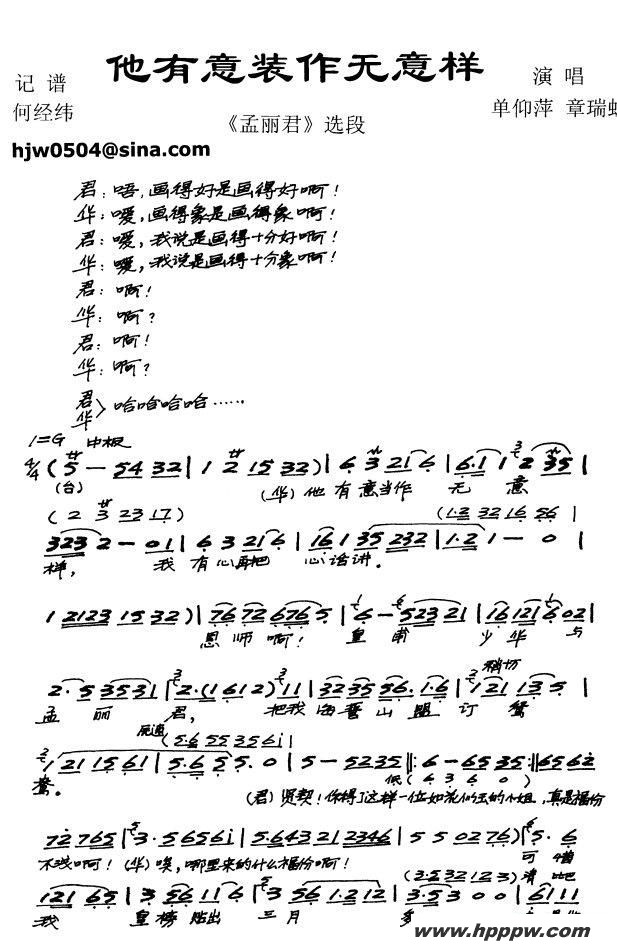 他有意装作无意样
记 谱
演 唱
何经纬
《孟丽君》选段
单仰萍 章瑞虹
hjw0504@sina.com
君：唔，画得好是画得好啊！
华：嗳，画得象是画得象啊！
君：嗳，我说是画得十分好啊！
华：嗳，我说是画得十分象啊！
君：啊！
华：啊？
君：啊！
华：啊？
君
华
哈哈哈哈……
1=G 中板
4/4 (5 — 54 32 | 1 2 15 32) | 6 3 21 6 | 6·1 1 2 35 |
(台) (华) 他 有 意 当作 无 意
(2 3 23 17) (1·2 32 16 56 |
323 2 — 01 | 6 3 21 6 | 16 1 35 232 | 1·2 1 — 0 |
样， 我 有心再把 心话讲。
1 2123 15 32) | 76 72 676 5 | 6 — 523 21 | 16 121 6 02 |
恩师啊！ 皇 甫 少华 与
稍切
2· 5 35 31 | 2·(1 61 2) 11 | 32 35 56· 1·6 | 1 21 13 5 |
孟 丽 君， 把我 海誓山 盟 订 鸳
(5·6 55 35 6i |
1 21 15 61 | 5·6 5 5· 0 | 5 — 52 35 |: 6 — 65 35 :| 65 62
鸯。 (6 3 6 0)
(君) 贤契！你得了这样一位如花似玉的小姐，真是福份
72 765 | 3· 5 65 6i | 5·643 212346 | 5 5 0276) | 5· 6
不浅啊！(华) 唉，哪里来的什么福份啊！ 可 惜
(3·5 32 12 3)
121 65 | 3 56 11 6 | 3 56 1·2 12 | 3·5 3 0 0 | 61 11
我 皇榜 贴出 三月 多
www.hpppw.com